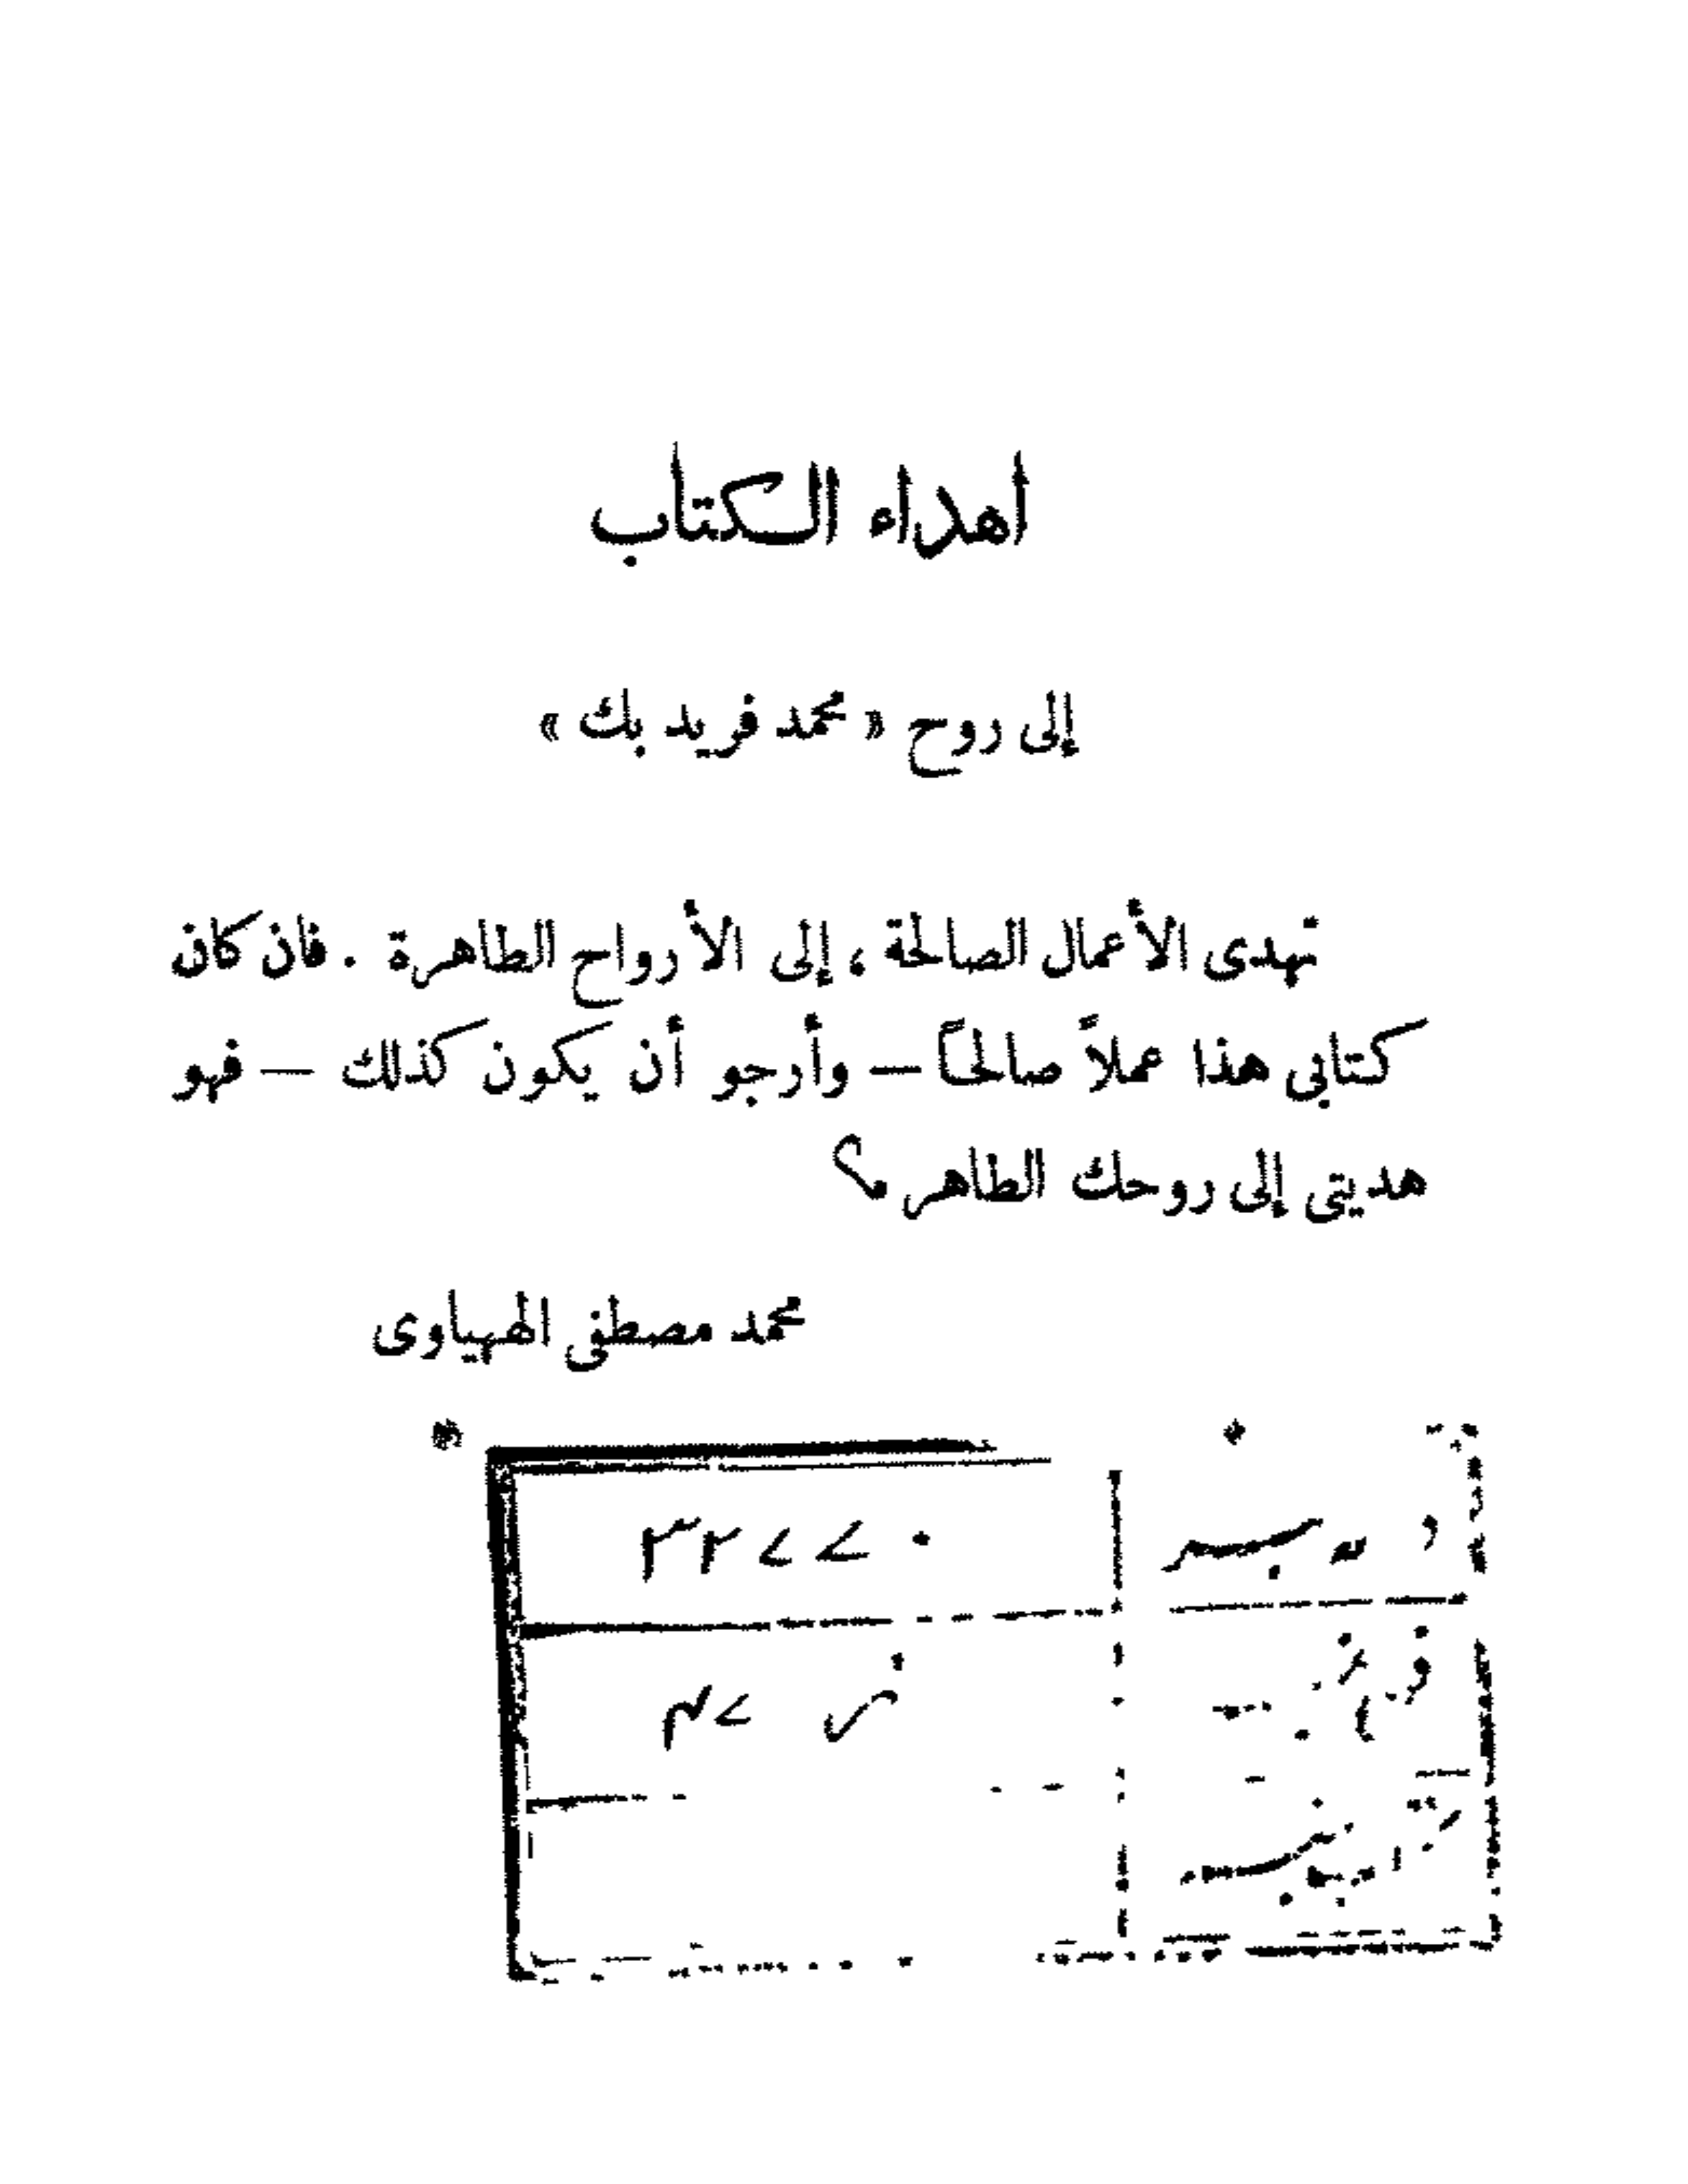 اهداء الكتاب
إلى روح « محمد فريد بك »
تهدى الأعمال الصالحة ، إلى الأرواح الطاهرة . فان كان
كتابى هذا عملاً صالحاً — وأرجو أن يكون كذلك — فهو
هديتى إلى روحك الطاهر
محمد مصطفى الهياوى